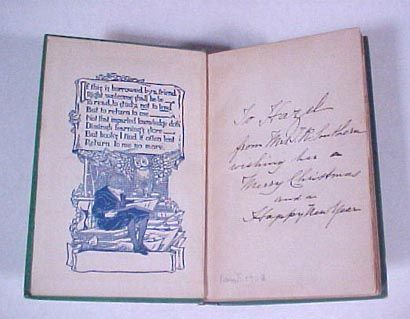 If this is borrowed by a friend
Right welcome shall he be
To read, to study, not to lend
But to return to me
Not that imparted knowledge doth
Diminish learning's store
But books I find if often lent
Return to me no more
To Hazel
from Mrs
wishing her a
Merry Christmas
and a
Happy New Year